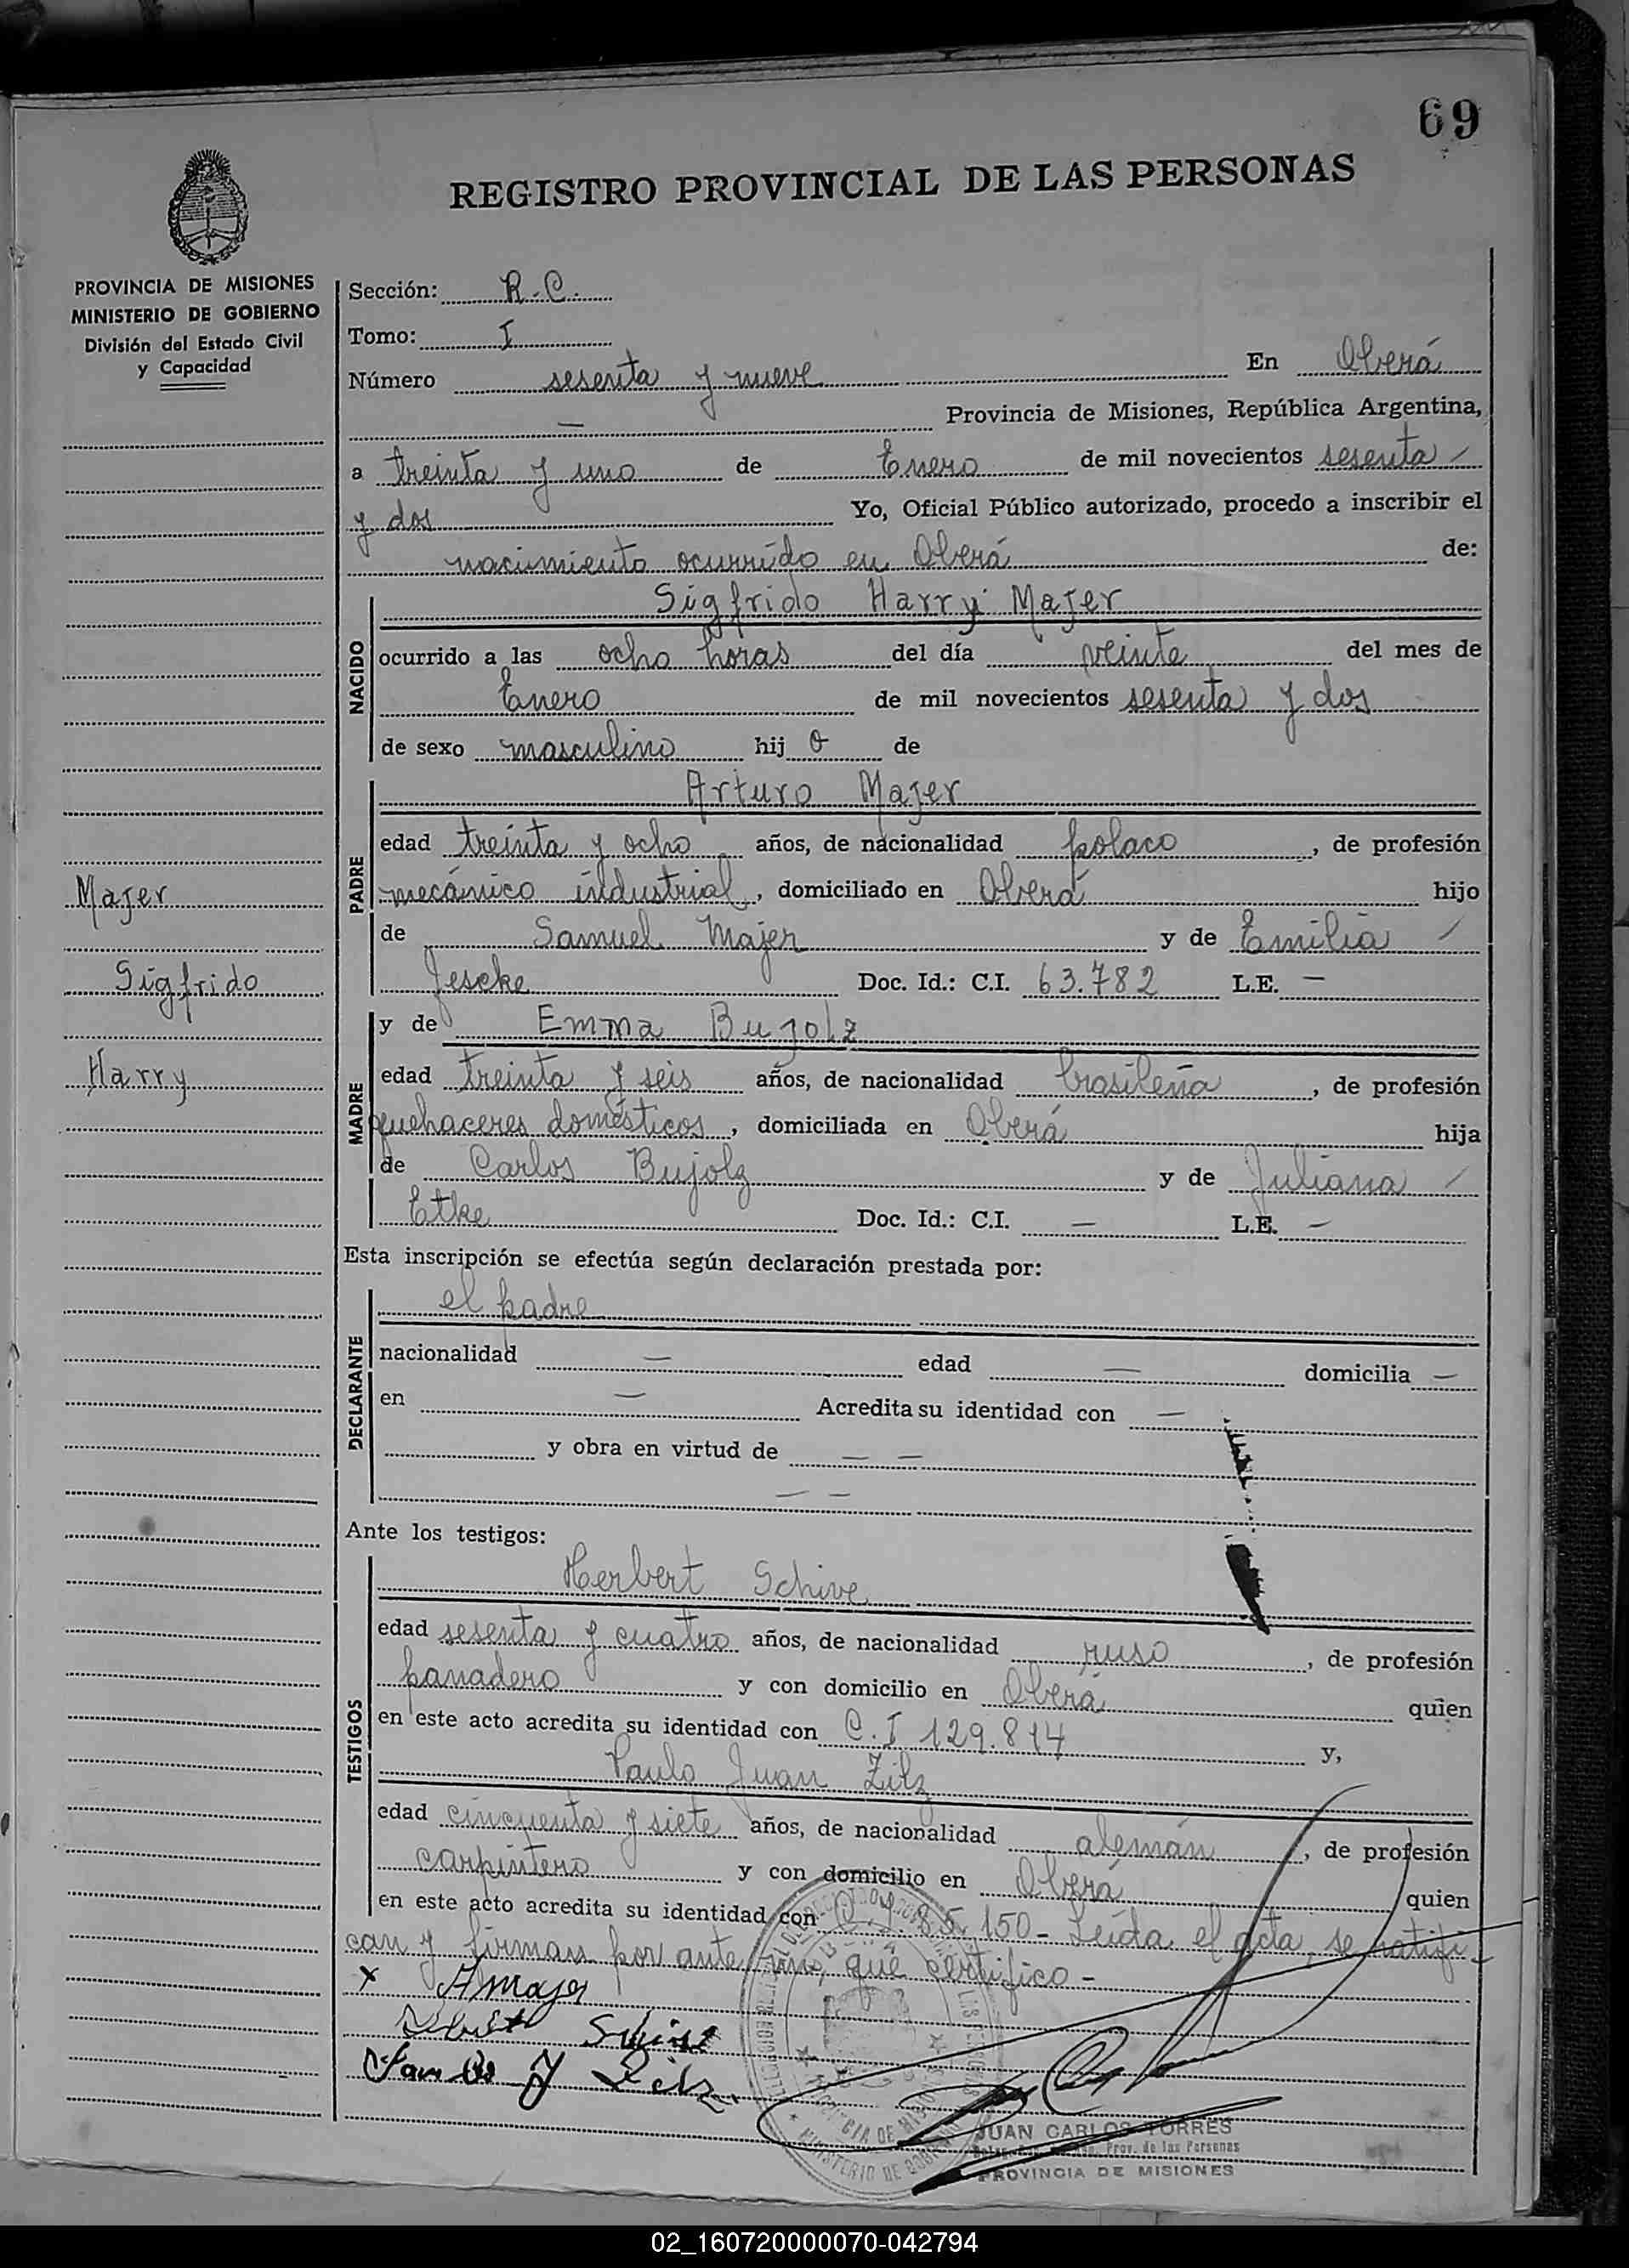 69
REGISTRO PROVINCIAL DE LAS PERSONAS
PROVINCIA DE MISIONES
MINISTERIO DE GOBIERNO
División del Estado Civil
y Capacidad
Majer
Sigfrido
Harry
Sección: R.C.
Tomo: I
Número sesenta y nueve En Oberá
— Provincia de Misiones, República Argentina,
a treinta y uno de Enero de mil novecientos sesenta —
y dos Yo, Oficial Público autorizado, procedo a inscribir el
nacimiento ocurrido en Oberá de:
NACIDO
Sigfrido Harry Majer
ocurrido a las ocho horas del día veinte del mes de
Enero de mil novecientos sesenta y dos
de sexo masculino hij o de
PADRE
Arturo Majer
edad treinta y ocho años, de nacionalidad polaco, de profesión
mecánico industrial, domiciliado en Oberá hijo
de Samuel Majer y de Emilia —
Jescke Doc. Id.: C.I. 63.782 L.E. —
MADRE
y de Emma Bujolz
edad treinta y seis años, de nacionalidad brasileña, de profesión
quehaceres domésticos, domiciliada en Oberá hija
de Carlos Bujolz y de Juliana —
Etke Doc. Id.: C.I. — L.E. —
Esta inscripción se efectúa según declaración prestada por:
DECLARANTE
el padre
nacionalidad — edad — domicilia —
en — Acredita su identidad con —
y obra en virtud de — —
— —
Ante los testigos:
TESTIGOS
Herbert Schive
edad sesenta y cuatro años, de nacionalidad ruso, de profesión
panadero y con domicilio en Oberá quien
en este acto acredita su identidad con C.I 129.814 y,
Paulo Juan Zilz
edad cincuenta y siete años, de nacionalidad alemán, de profesión
carpintero y con domicilio en Oberá quien
en este acto acredita su identidad con 150 - Leída el acta, se ratifi-
can y firman por ante mí, que certifico -
x A Majer
Paulo J Zilz
JUAN CARLOS TORRES
Prov. de las Personas
PROVINCIA DE MISIONES
02_160720000070-042794